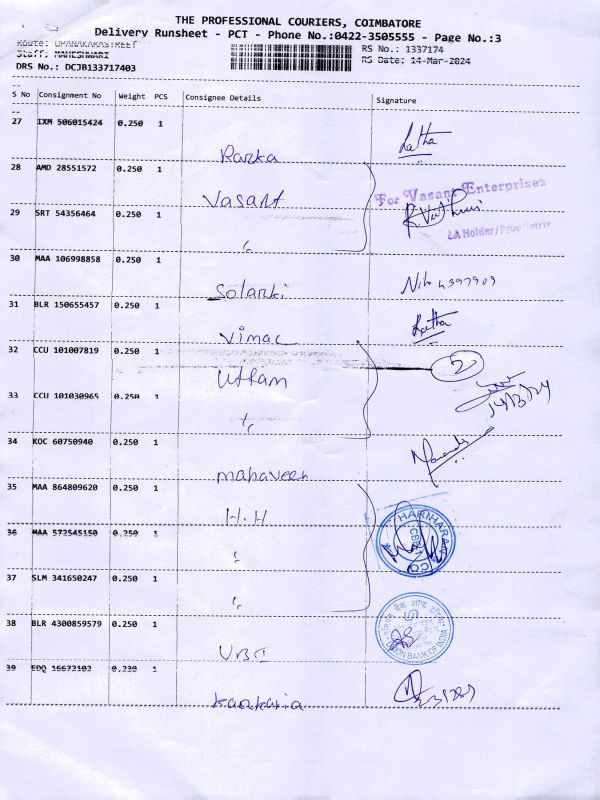 THE PROFESSIONAL COURIERS, COIMBATORE
Delivery Runsheet - PCT - Phone No.:0422-3505555 - Page No.:3
Route:
Staff: MAHESHWARI
RS No.: 1337174
DRS No.: DCJB133717403
RS Date: 14-Mar-2024
S No Consignment No Weight PCS Consignee Details Signature
27 IXM 506015424 0.250 1
Ranka Latha
28 AMD 28551572 0.250 1
Vasant For Vasant Enterprises
29 SRT 54356464 0.250 1
LA Holder/Proprietrix
30 MAA 106998858 0.250 1
Solanki
31 BLR 150655457 0.250 1
Vimal Latha
32 CCU 101007819 0.250 1
Uttam 2
33 CCU 101030965 0.250 1
14/3/24
34 KOC 60750940 0.250 1
Mahaveer
35 MAA 864809620 0.250 1
H.H HARIHARAN
36 MAA 572545150 0.250 1
37 SLM 341650247 0.250 1
38 BLR 4300859579 0.250 1
UBI UNION BANK OF INDIA
39 EDQ 16672102 0.230 1
Kankaria